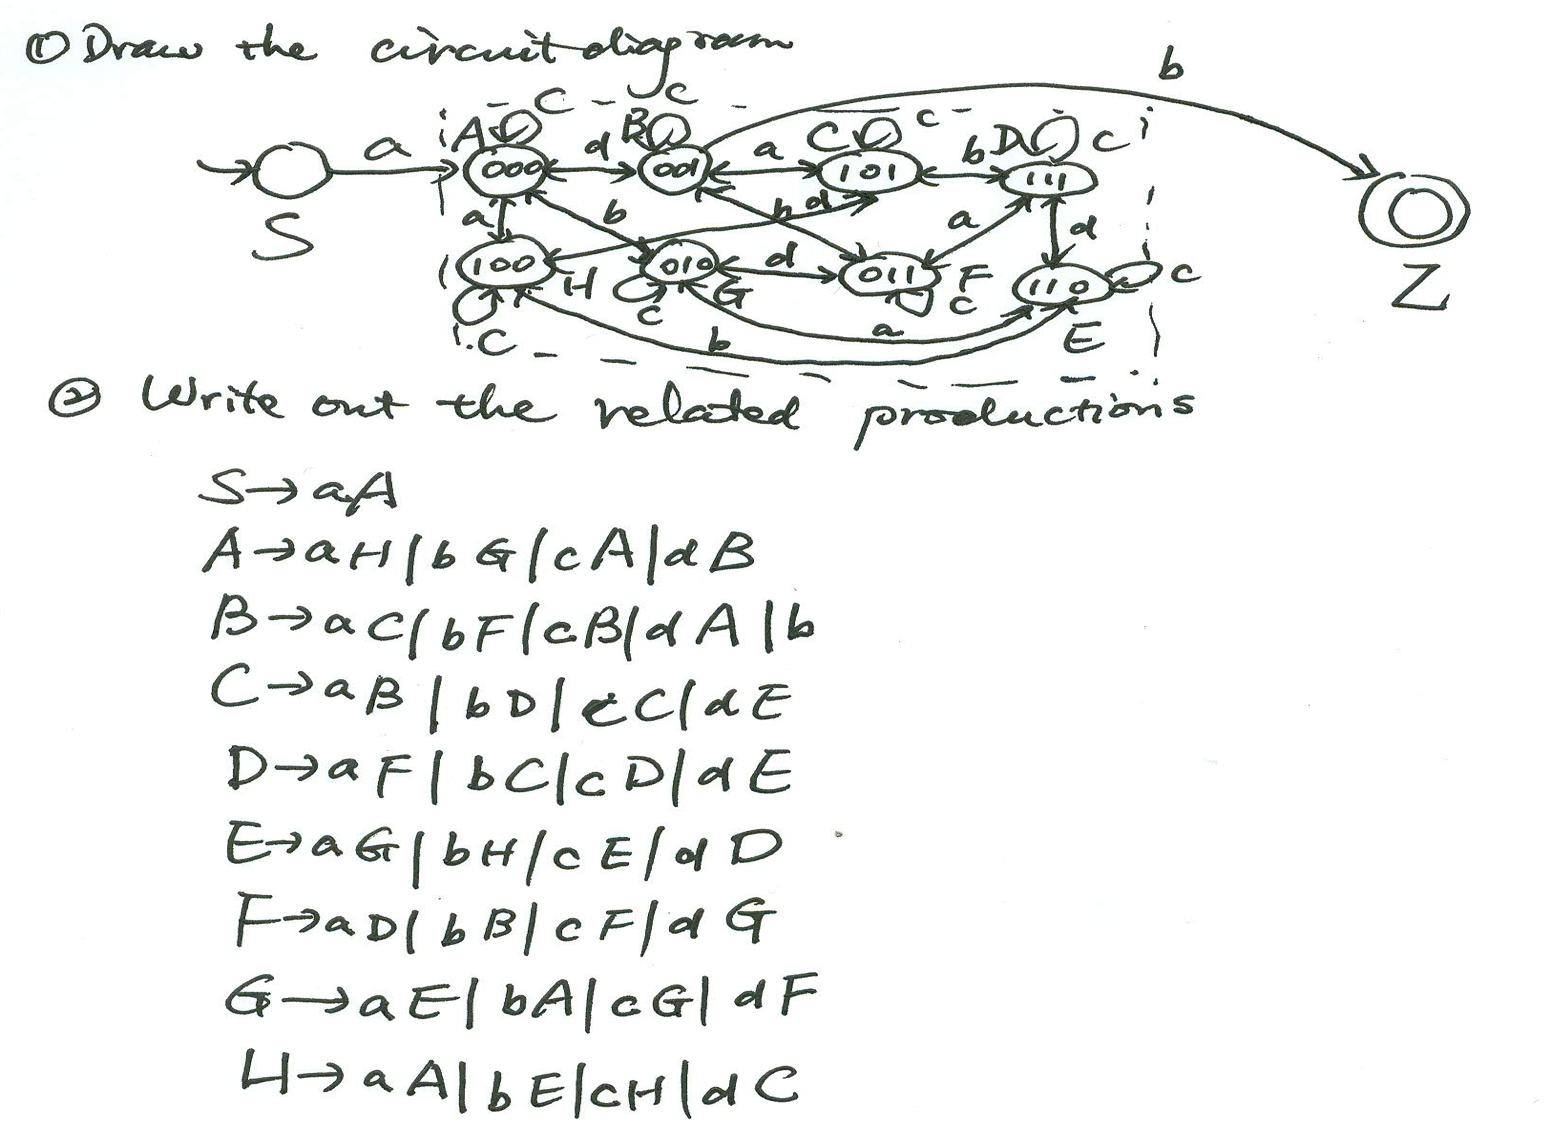 ① Draw the circuit diagram
b
c c c c
A B C D
a 000 d 001 a 101 b 111
S a b b d a d Z
100 H 010 G d 011 F 110 c
c c c
a
b E
② Write out the related productions
S→aA
A→aH|bG|cA|dB
B→aC|bF|cB|dA|b
C→aB|bD|cC|dE
D→aF|bC|cD|dE
E→aG|bH|cE|dD
F→aD|bB|cF|dG
G→aE|bA|cG|dF
H→aA|bE|cH|dC